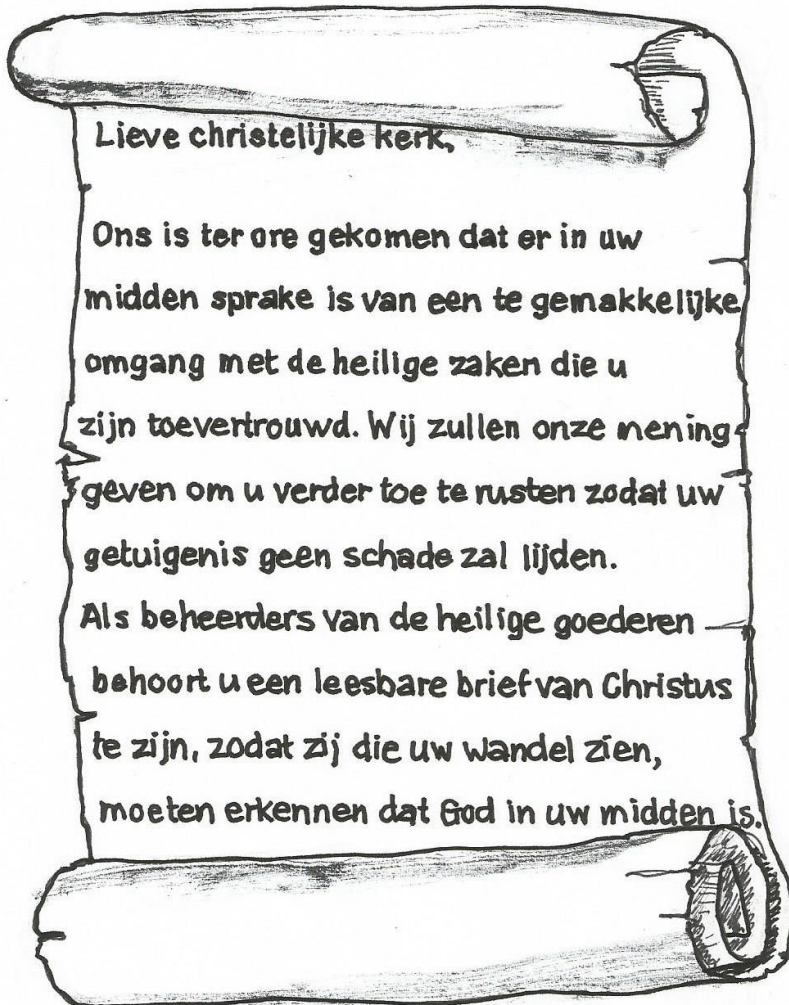 Lieve christelijke kerk,
Ons is ter ore gekomen dat er in uw
midden sprake is van een te gemakkelijke
omgang met de heilige zaken die u
zijn toevertrouwd. Wij zullen onze mening
geven om u verder toe te rusten zodat uw
getuigenis geen schade zal lijden.
Als beheerders van de heilige goederen
behoort u een leesbare brief van Christus
te zijn, zodat zij die uw wandel zien,
moeten erkennen dat God in uw midden is.